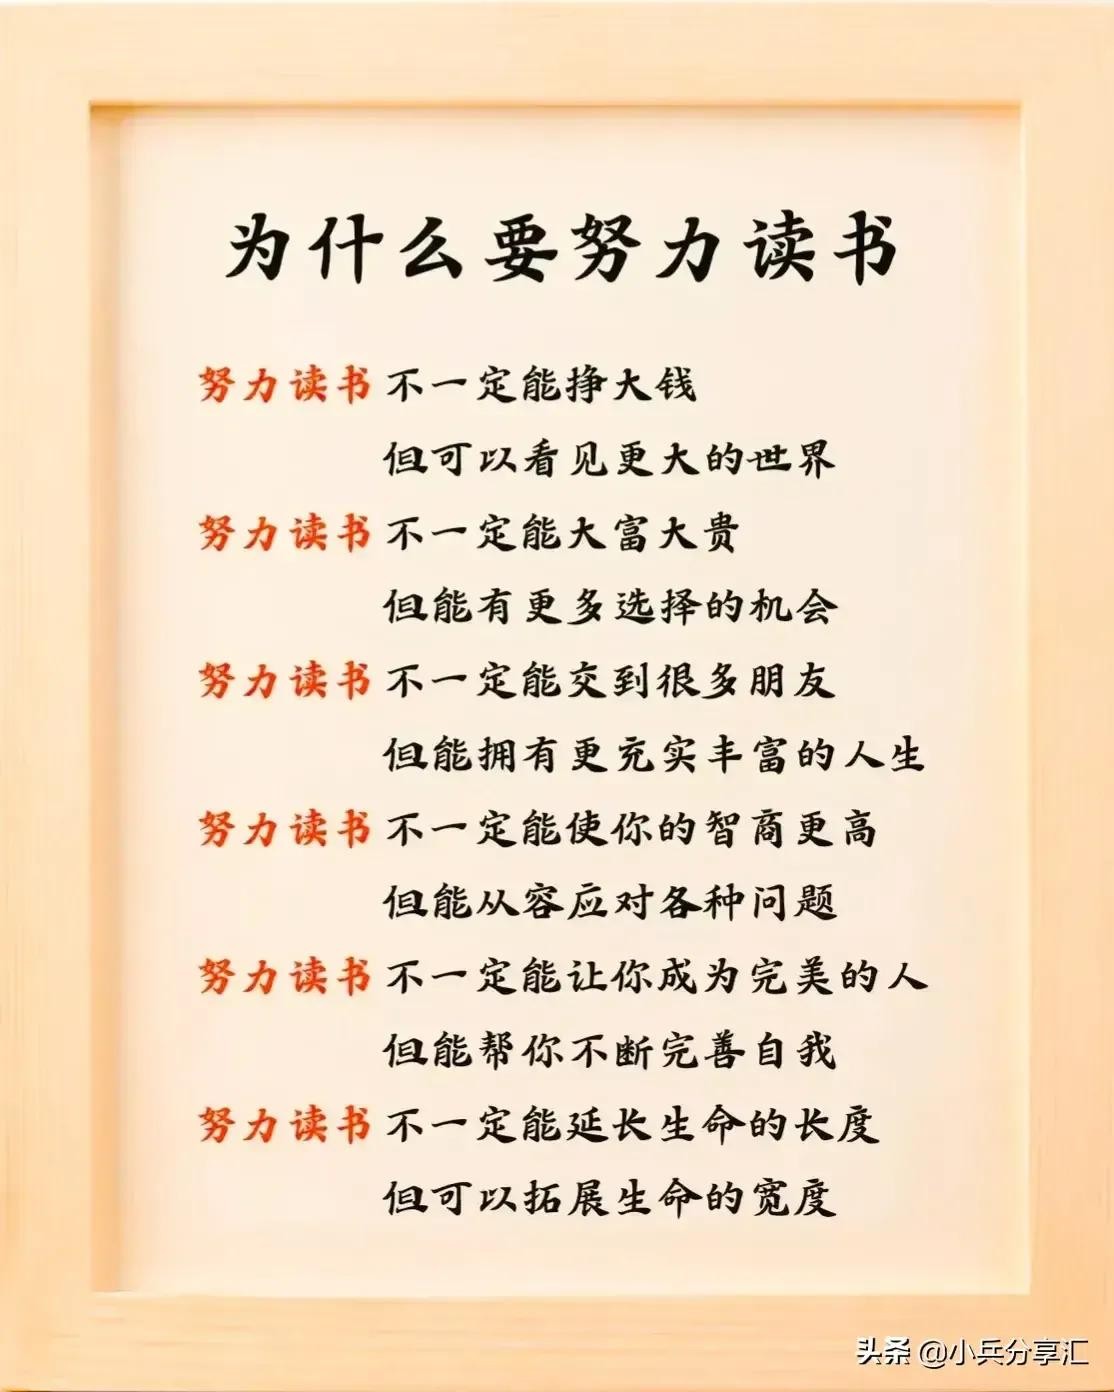 为什么要努力读书
努力读书 不一定能挣大钱
但可以看见更大的世界
努力读书 不一定能大富大贵
但能有更多选择的机会
努力读书 不一定能交到很多朋友
但能拥有更充实丰富的人生
努力读书 不一定能使你的智商更高
但能从容应对各种问题
努力读书 不一定能让你成为完美的人
但能帮你不断完善自我
努力读书 不一定能延长生命的长度
但可以拓展生命的宽度
头条 @小兵分享汇